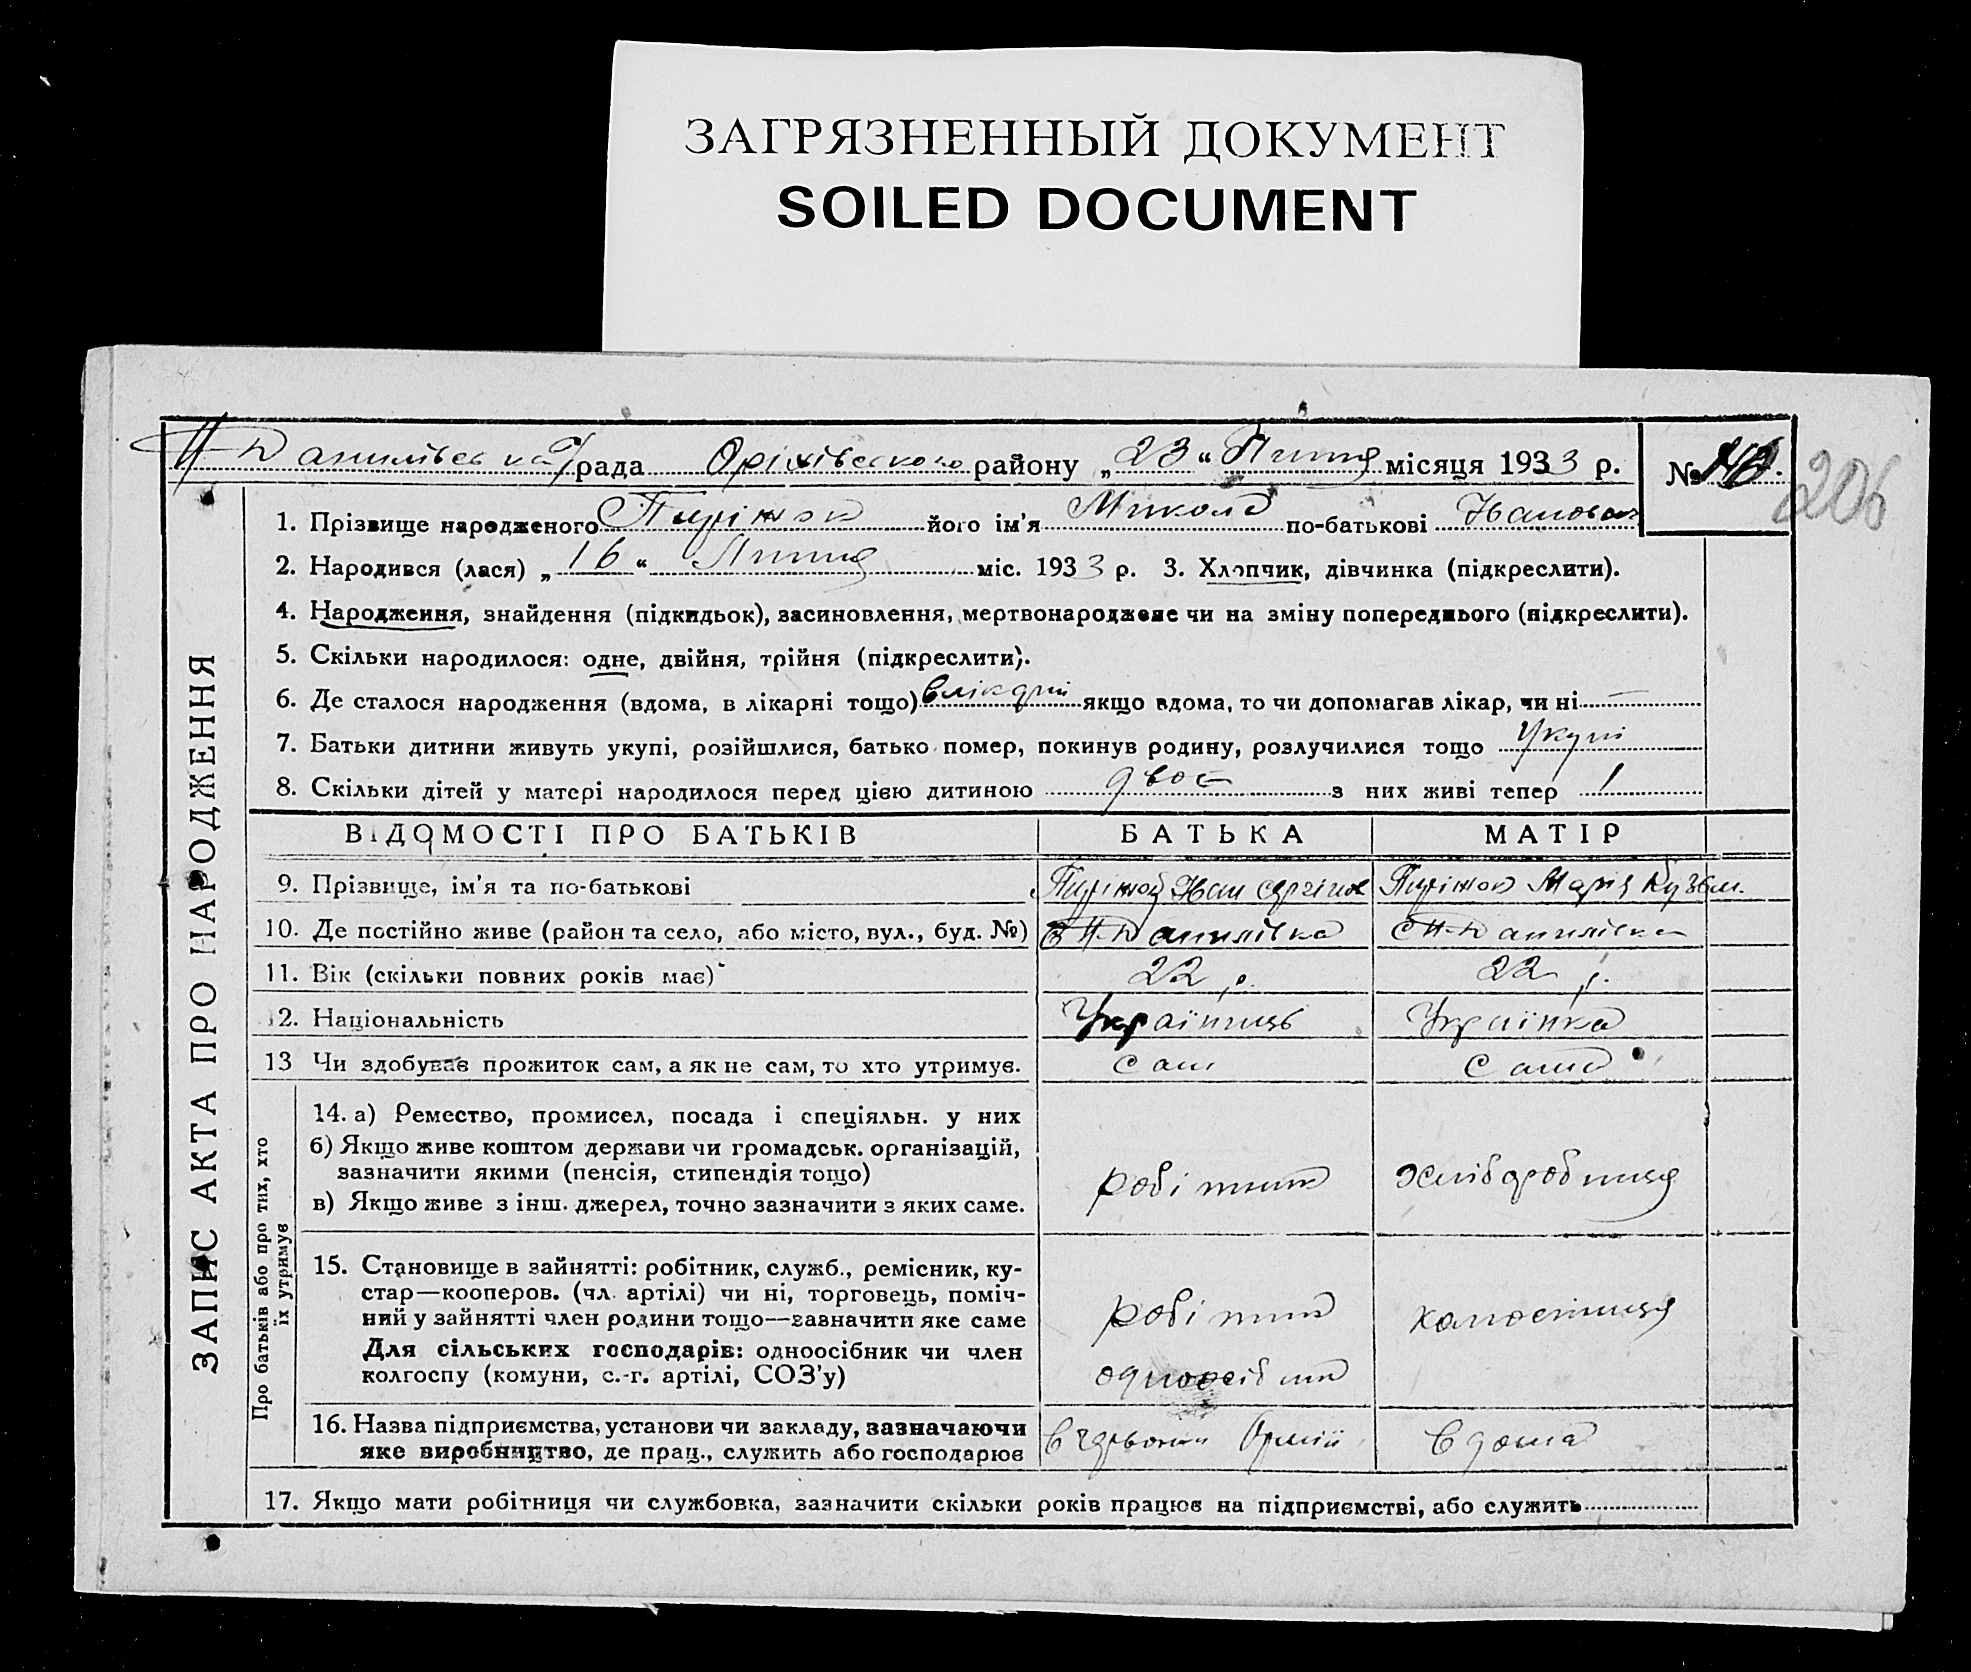 ЗАГРЯЗНЕННЫЙ ДОКУМЕНТ
SOILED DOCUMENT
Н-Данилівська с/рада Оріхівського району „23“ Липня місяця 1933 р. №
206
1. Прізвище народженого Пиріжок його ім'я Микола по-батькові Іванович
2. Народився (лася) „16“ Липня міс. 1933 р. 3. Хлопчик, дівчинка (підкреслити).
4. Народження, знайдення (підкидьок), засиновлення, мертвонароджене чи на зміну попереднього (підкреслити).
5. Скільки народилося: одне, двійня, трійня (підкреслити).
6. Де сталося народження (вдома, в лікарні тощо) якщо вдома, то чи допомагав лікар, чи ні —
7. Батьки дитини живуть укупі, розійшлися, батько помер, покинув родину, розлучилися тощо Укупі
8. Скільки дітей у матері народилося перед цією дитиною двоє з них живі тепер 1
ЗАПИС АКТА ПРО НАРОДЖЕННЯ
ВІДОМОСТІ ПРО БАТЬКІВ БАТЬКА МАТІР
9. Прізвище, ім'я та по-батькові Пиріжок Іван Сергійов Пиріжок Марія Кузьм.
10. Де постійно живе (район та село, або місто, вул., буд. №) с Н-Данилівка с Н-Данилівка
11. Вік (скільки повних років має) 22 р. 22 р.
12. Національність Українець Українка
13 Чи здобуває прожиток сам, а як не сам, то хто утримує. Сам Сама
Про батьків або про тих, хто
їх утримує
14. а) Ремество, промисел, посада і спеціяльн. у них
б) Якщо живе коштом держави чи громадськ. організацій,
зазначити якими (пенсія, стипендія тощо)
в) Якщо живе з інш. джерел, точно зазначити з яких саме.
робітник хліборобниця
15. Становище в зайнятті: робітник, служб., ремісник, ку-
стар—кооперов. (чл. артілі) чи ні, торговець, поміч-
ний у зайнятті член родини тощо—зазначити яке саме
робітник колгоспниця
Для сільських господарів: одноосібник чи член
колгоспу (комуни, с.-г. артілі, СОЗ'у)
одноосібник
16. Назва підприємства, установи чи закладу, зазначаючи
яке виробництво, де прац., служить або господарює
в червоній Армії вдома
17. Якщо мати робітниця чи службовка, зазначити скільки років працює на підприємстві, або служить